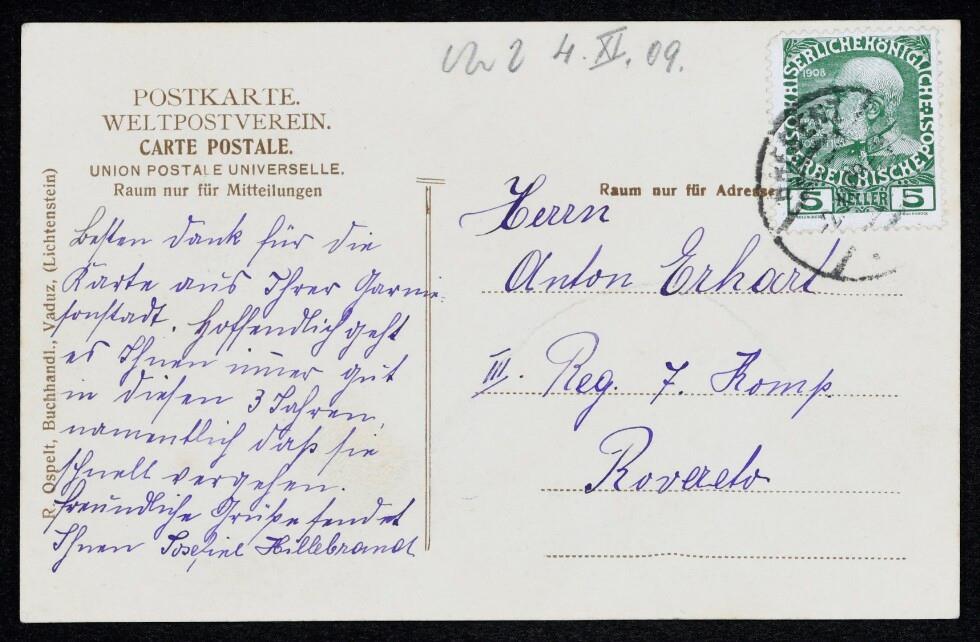 4. XI. 09.
POSTKARTE.
WELTPOSTVEREIN.
CARTE POSTALE.
UNION POSTALE UNIVERSELLE.
Raum nur für Mitteilungen
R. Ospelt, Buchhandl., Vaduz, (Lichtenstein)
Besten Dank für die
Karte aus Ihrer Garni-
sonstadt. Hoffendlich geht
es Ihnen immer gut
in diesen 3 Jahren,
namentlich daß sie
schnell vergehen.
Freundliche Grüße sendet
Ihnen Hillebrand
Raum nur für Adresse
Herrn
Anton Erhart
III. Reg. 7. Komp.
Rovereto
KAISERLICHEKÖNIGLICHE
1908
5 HELLER 5